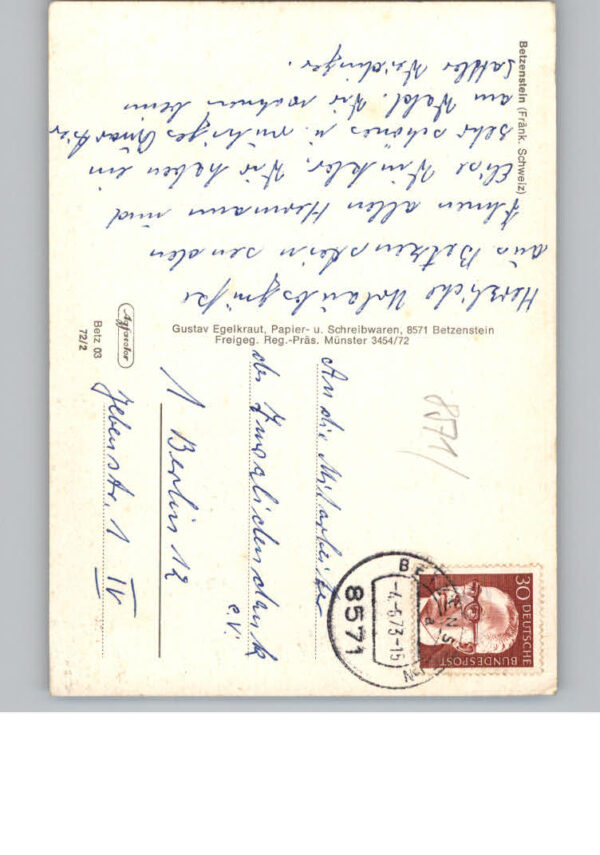 Betzenstein (Fränk. Schweiz)
Herzliche Urlaubsgrüße
aus Betzenstein senden
Ihnen allen Hermann und
Elise Winkler. Wir haben ein
sehr schönes u. ruhiges Quartier
am Wald. Wir wohnen beim
Sattler
Gustav Egelkraut, Papier- u. Schreibwaren, 8571 Betzenstein
Freigeg. Reg.-Präs. Münster 3454/72
Agfacolor
Betz 03
72/2
8571/
30 DEUTSCHE
BUNDESPOST
BETZENSTEIN
a
-4.-6.73-15
8571
An die Mitarbeiter
des
e.V.
1 Berlin 12
Jebenstr. 1 IV